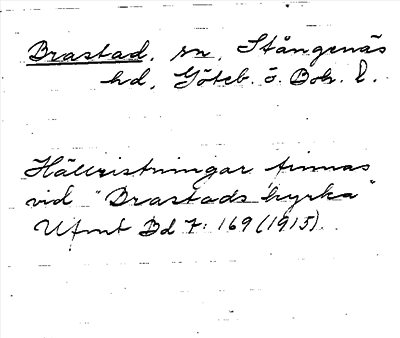 Brastad. sn, Stångenäs
hd, Göteb. o. Boh. l.
Hällristningar finnas
vid "Brastads kyrka"
Ufmt Bd 7: 169 (1915).